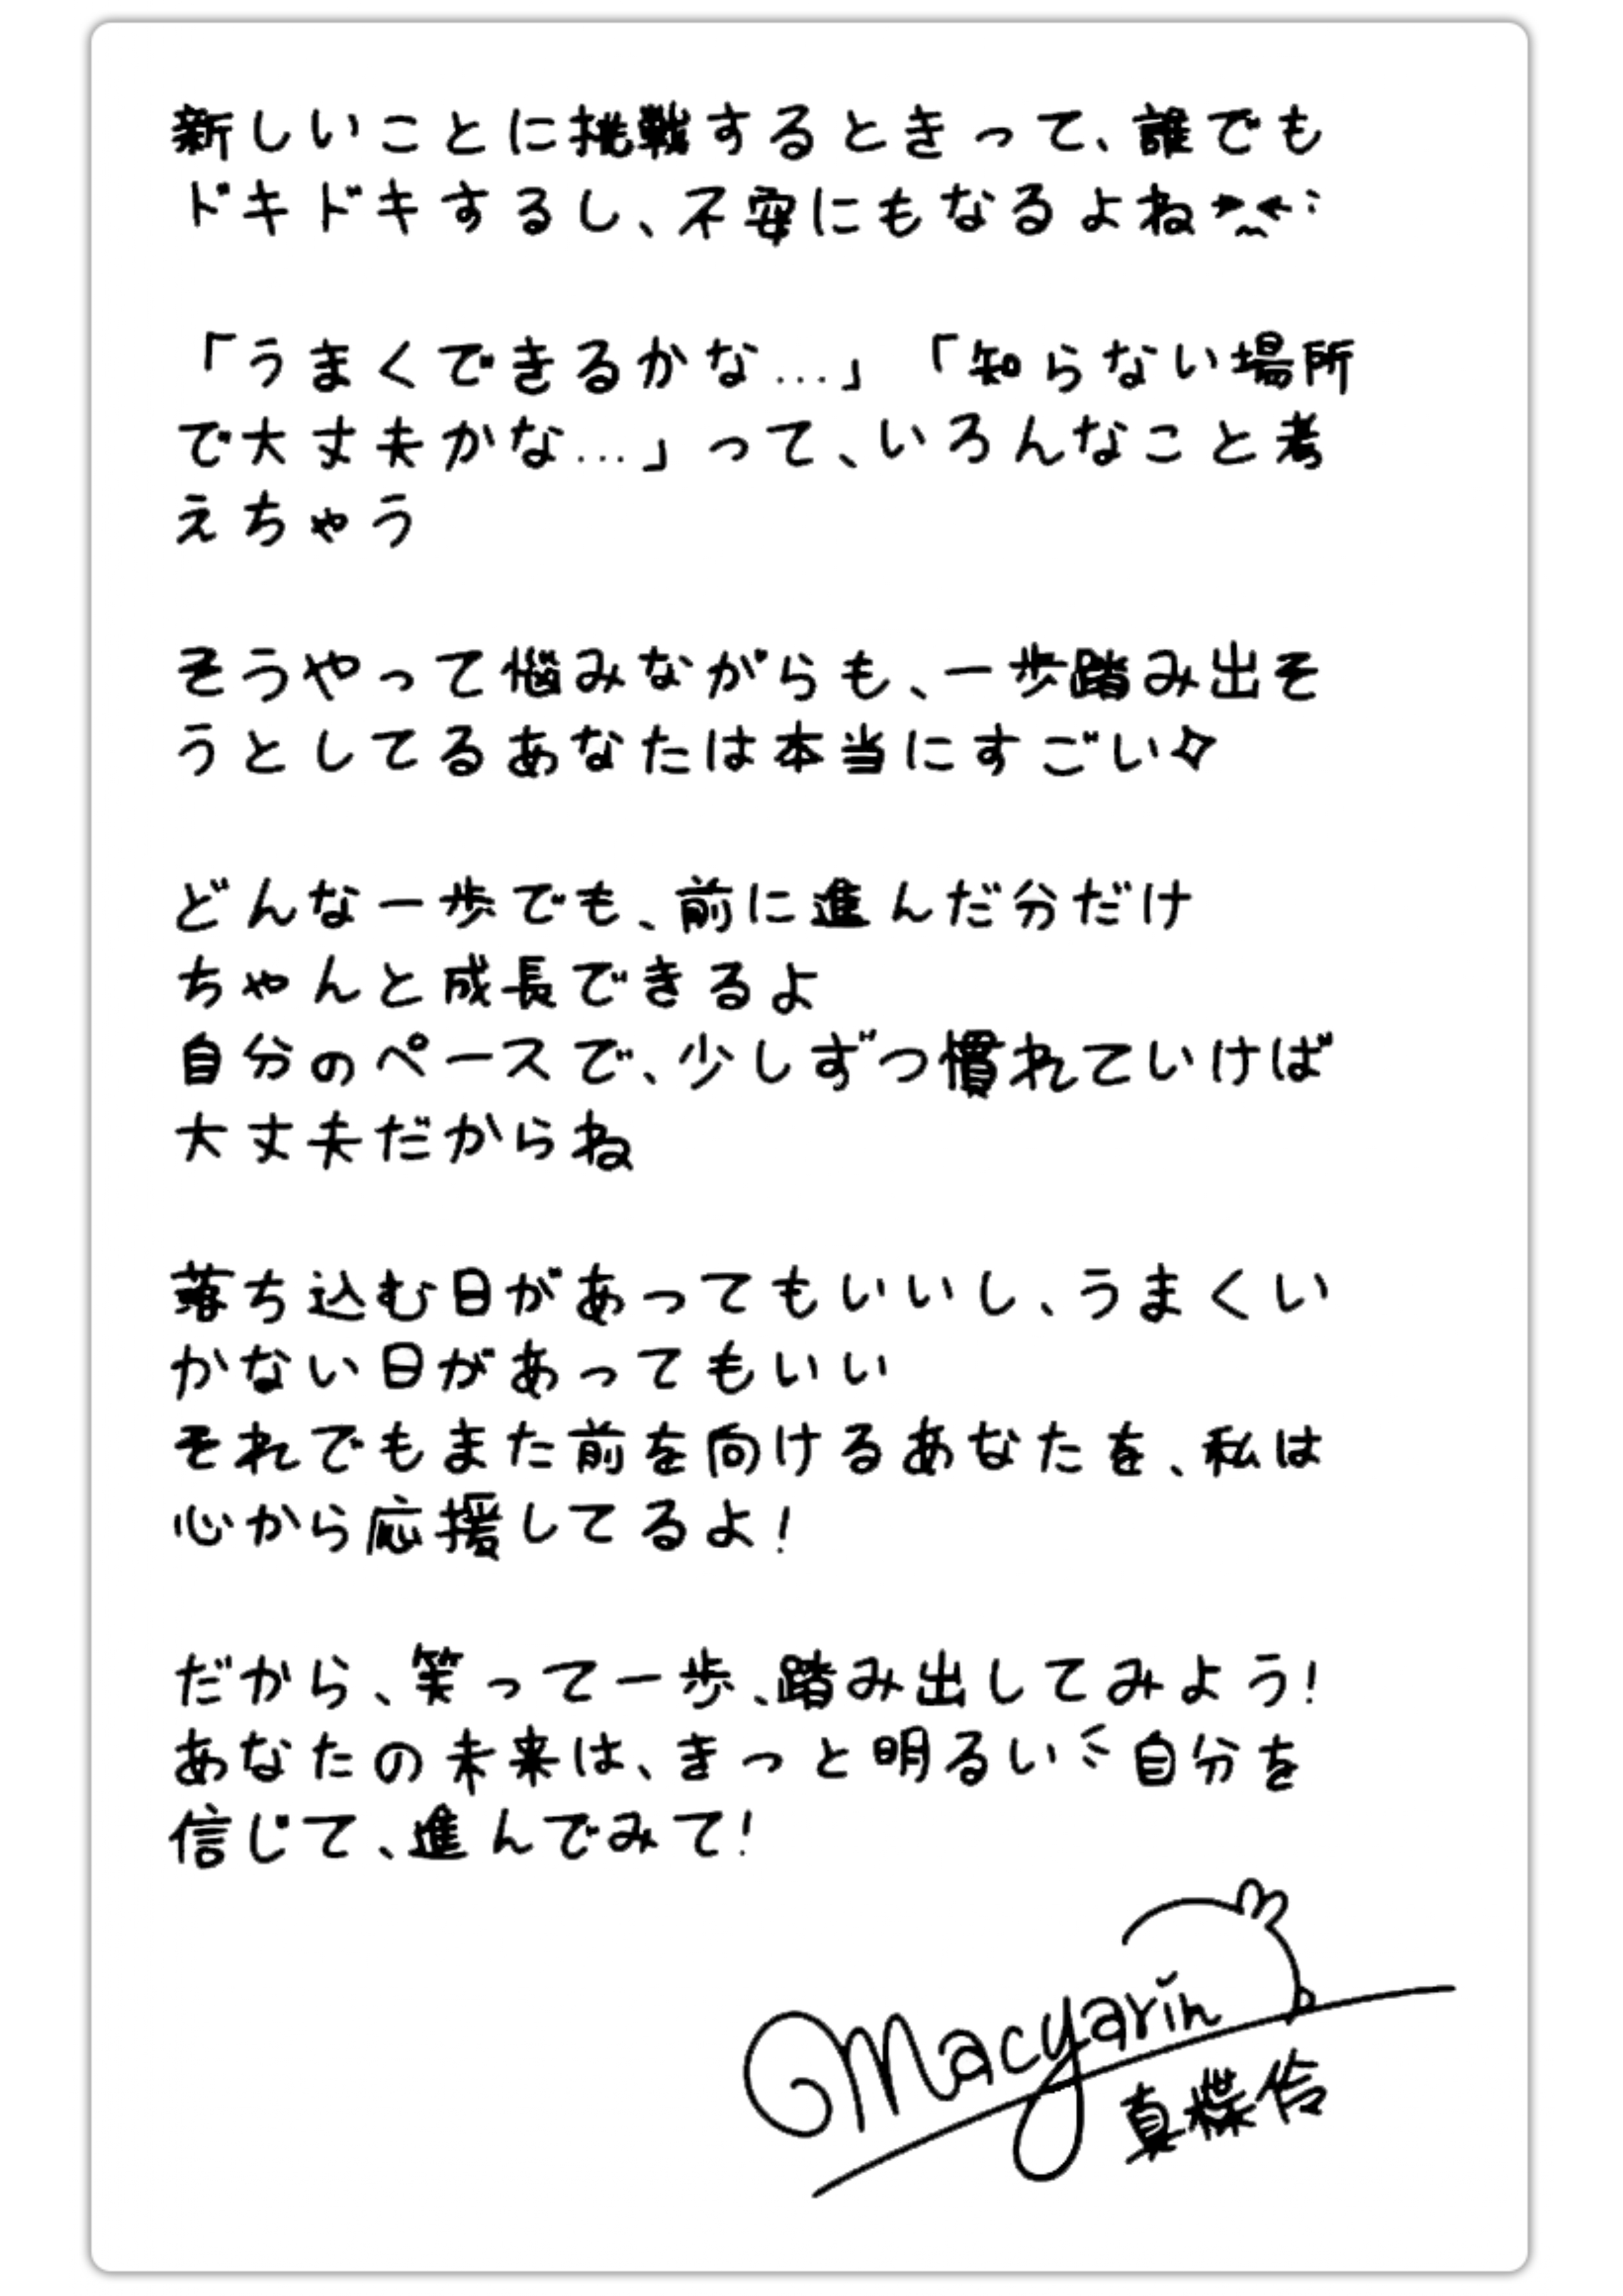 新しいことに挑戦するときって、誰でも
ドキドキするし、不安にもなるよね
「うまくできるかな…」「知らない場所
で大丈夫かな…」って、いろんなこと考
えちゃう
そうやって悩みながらも、一歩踏み出そ
うとしてるあなたは本当にすごい✧
どんな一歩でも、前に進んだ分だけ
ちゃんと成長できるよ
自分のペースで、少しずつ慣れていけば
大丈夫だからね
落ち込む日があってもいいし、うまくい
かない日があってもいい
それでもまた前を向けるあなたを、私は
心から応援してるよ!
だから、笑って一歩、踏み出してみよう!
あなたの未来は、きっと明るい 自分を
信じて、進んでみて!
Macyarin
真蝶伶